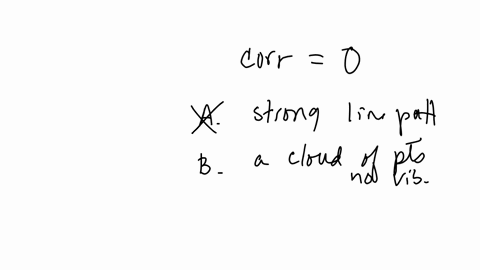 corr = 0
A. strong line patt
B. a cloud of pts
no vis.